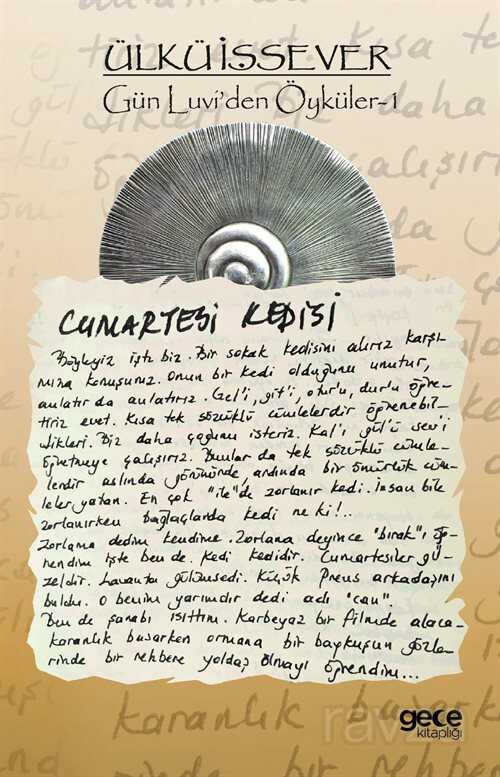 ÜLKÜ İSSEVER
Gün Luvi'den Öyküler-1
CUMARTESİ KEDİSİ
Böyleyiz işte biz. Bir sokak kedisini alırız karşı-
mıza konuşuruz. Onun bir kedi olduğunu unutur,
anlatır da anlatırız. Gel'i, git'i, otur'u, dur'u öğre-
tiriz evet. Kısa tek sözüklü cümlelerdir öğrenebil-
dikleri. Biz daha çoğunu isteriz. Kal'ı, gül'ü sev'i
öğretmeye çalışırız. Bunlar da tek sözüklü cümle-
lerdir aslında görünürde, ardında bir ömürlük cüm-
leler yatan. En çok "ile"de zorlanır kedi. İnsan bile
zorlanırken bağlaçlarda kedi ne ki!..
Zorlama dedim kendime. Zorlama deyince "bırak"ı öğ-
rendim işte ben de. Kedi kedidir. Cumartesiler gü-
zeldir. Lavanta gülümsedi. Küçük Prens arkadaşını
buldu. O benim yarimdir dedi adı "can".
Ben de şarabı ısıttım. Karbeyaz bir filmde alaca-
karanlık basarken ormana bir baykuşun gözle-
rinde bir rehbere yoldaş olmayı öğrendim...
karanlık basarken
gece
kitaplığı